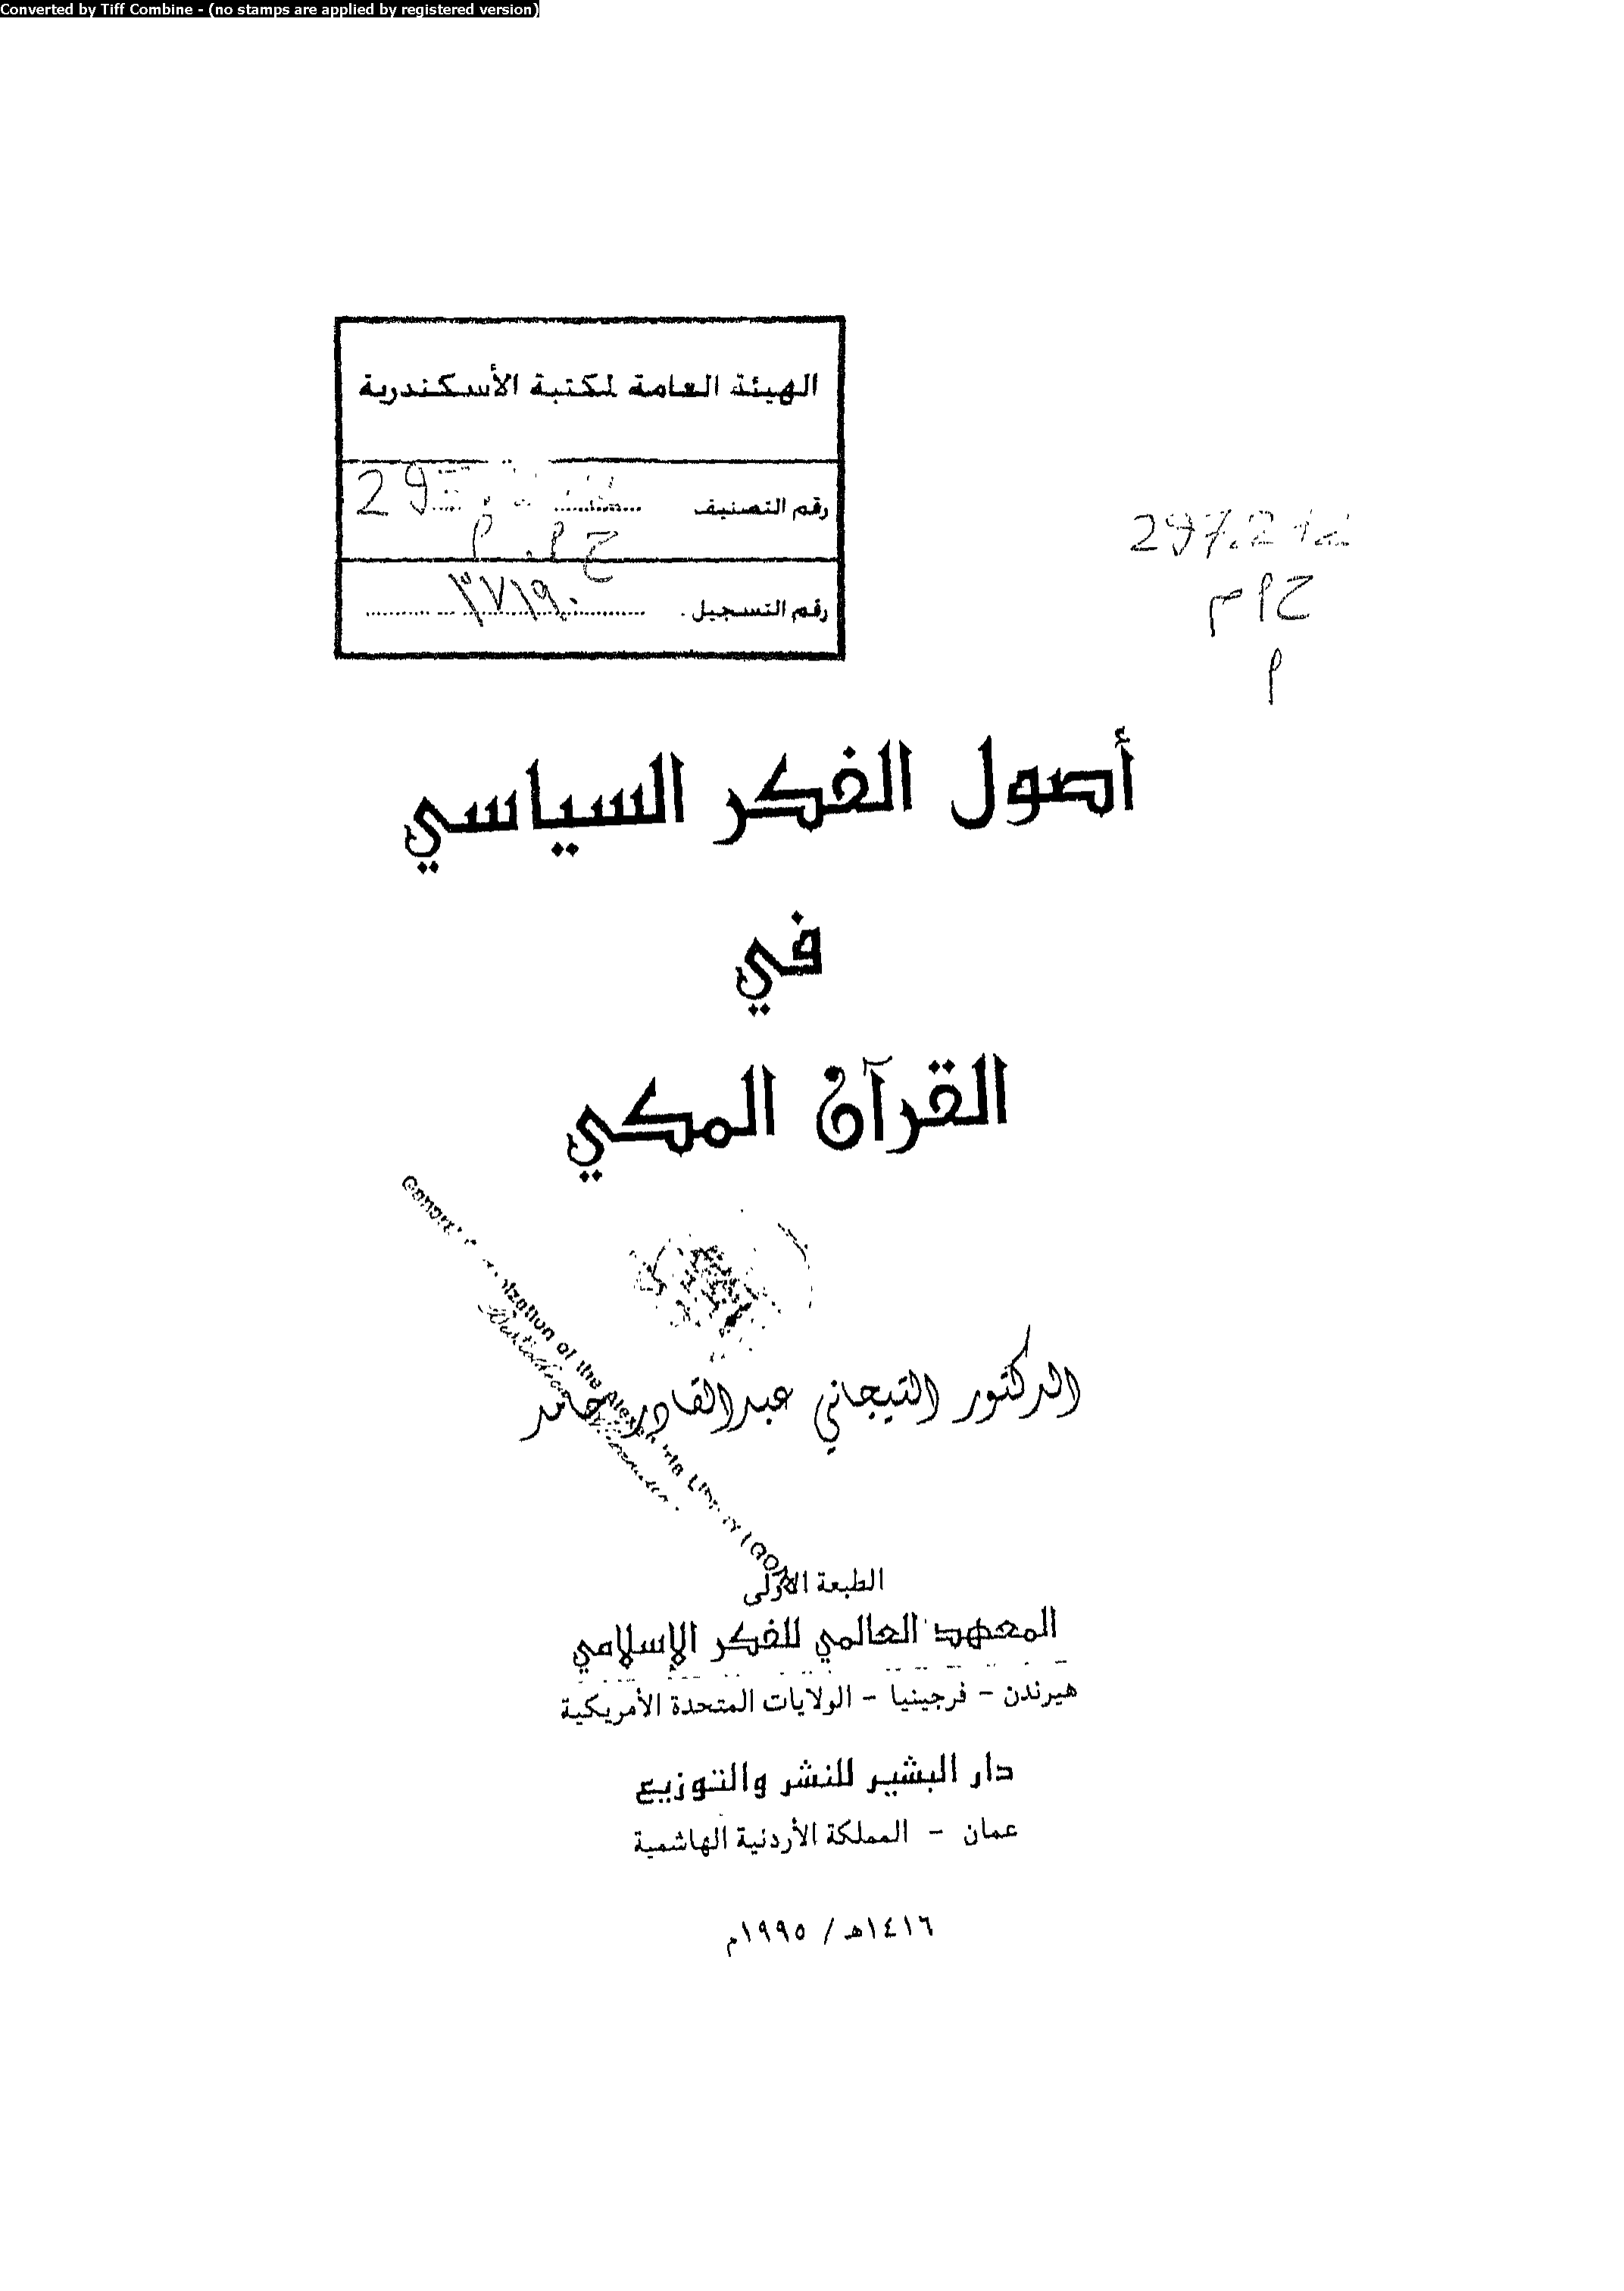 Converted by Tiff Combine - (no stamps are applied by registered version)
الهيئة العامة لمكتبة الأسكندرية
رقم التصنيف
رقم التسجيل ٣٧١٩٠
ح ا م
ا
أصول الفكر السياسي
في
القرآن المكي
الدكتور التيجاني عبدالقادر حامد
of the
الطبعة الأولى
المعهد العالمي للفكر الإسلامي
هيرندن - فرجينيا - الولايات المتحدة الأمريكية
دار البشير للنشر والتوزيع
عمان - المملكة الأردنية الهاشمية
١٤١٦هـ / ١٩٩٥م